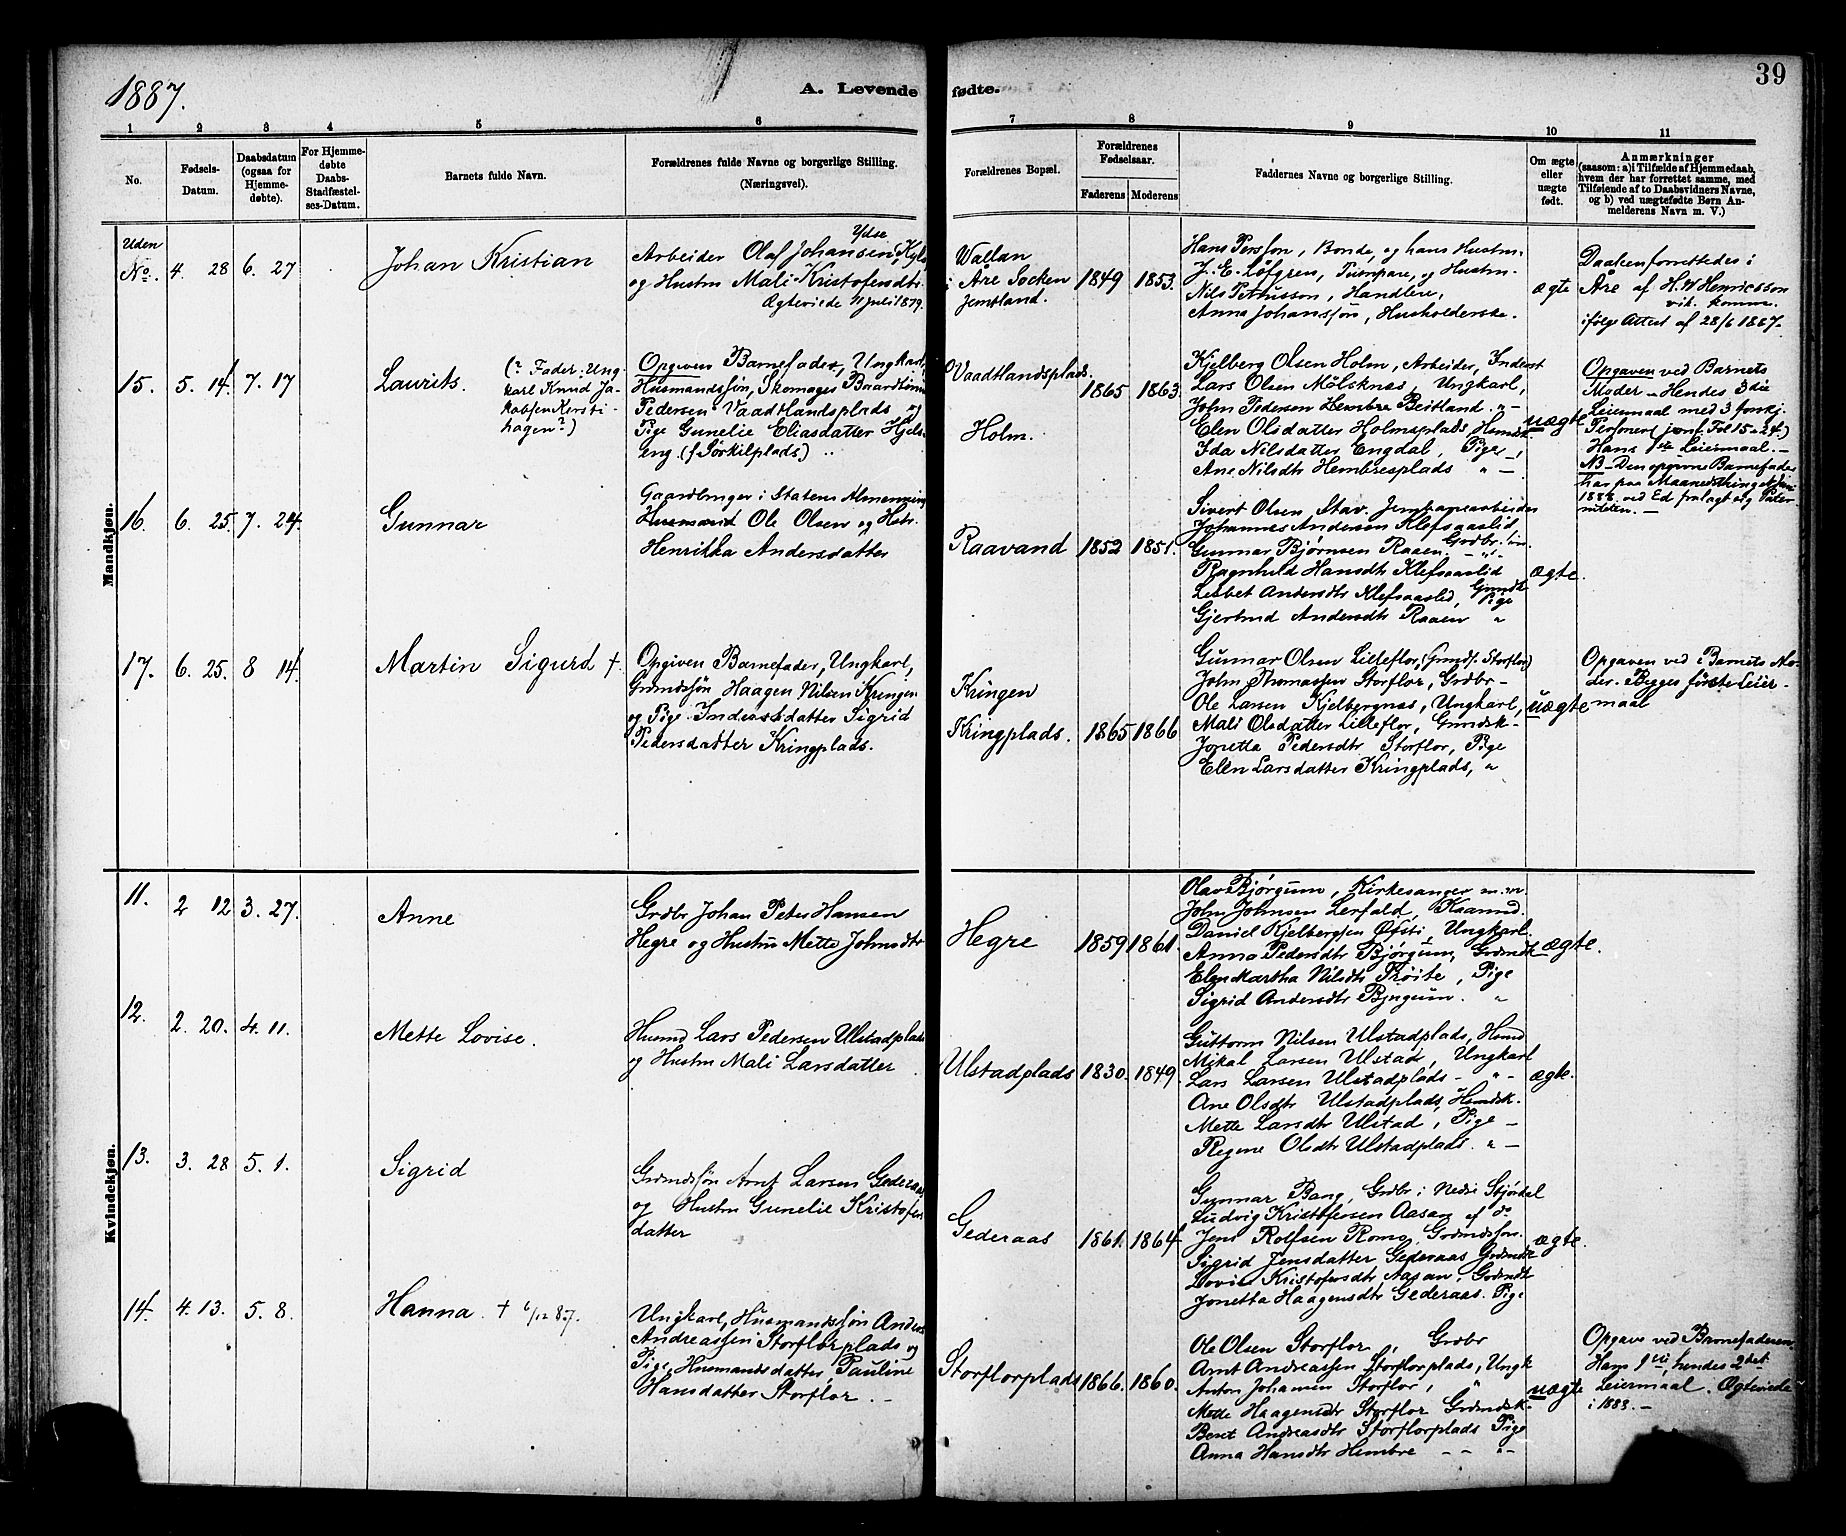 1887.
A. Levende fødte.
39
1 2 3 4 5 6 7 8 9 10 11
No.
Fødsels-
Datum.
Daabsdatum
(ogsaa for
Hjemme-
døbte).
For Hjemme-
døbte
Daabs-
Stadfæstel-
ses-Datum.
Barnets fulde Navn.
Forældrenes fulde Navne og borgerlige Stilling.
(Næringsvei).
Forældrenes Bopæl.
Forældrenes
Fødselsaar.
Faderens Moderens
Faddernes Navne og borgerlige Stilling.
Om ægte
eller
uægte
født.
Anmærkninger
(saasom: a) i Tilfælde af Hjemmedaab,
hvem der har forrettet samme, med
Tilføiende af to Daabsvidners Navne,
og b) ved uægtefødte Børn An-
melderens Navn m. V.)
Mandkjøn.
Uden
No. 4. 28 6. 27
Johan Kristian
Ydse
Arbeider Olaf Johansen,
og Hustru Mali Kristofersdtr
Ægteviede 11 juli 1879.
Wallan
i Åre Socken
Jemtland.
1849 1853.
Hans Persson, Bonde, og hans Hustru
J. E. Løfgren, og Hustru
Nils Petrusson, Handlere,
Anna Johansson, Husholderske.
ægte
Daaben forrettedes i
Åre af H. W Henricsson
vik. komm.
ifølge Attest af 28/6 1887.
15. 5. 14. 7. 17
Laurits.
(? Fader: Ung-
karl Knud Ja-
kobsen Kersti-
hagen?)
Opgiven Barnefader, Ungkarl,
Husmandssøn, Skomager Baard
Pedersen Vaadtlandsplads og
Pige Gunelie Eliasdatter Hjels-
eng. (f Sørkilplads)
Vaadtlandsplads.
Holm.
1865 1863.
Kjelberg Olsen Holm, Arbeider, Inderst
Lars Olsen Mölsknæs, Ungkarl,
John Pedersen Hembre Beitland. " -
Elen Olsdatter Holmsplads,
Ida Nilsdatter Engdal, Pige
Ane Nilsdtr Hembresplads " -
uægte
Opgaven ved Barnets
Moder - Hendes 3die
Leiermaal med 3 forskj.
Personer, jevnf. Fol 15 & 24.)
Hans 1ste Leiermaal. -
NB - Den opgivne Barnefader
har paa Maanedsthinget
1888 ved Ed fralagt sig Pater-
niteten. -
16. 6. 25. 7. 24
Gunnar
Gaardbruger i Statens Almenning
Husmand Ole Olsen og Hstr.
Henrikka Andersdatter
Raavand
1852 1851.
Sivert Olsen, Stav.
Johannes Andersen Klefsaaslid
Gunnar Bjørnsen Raaen. Grdbr.
Ragnhild Hansdtr Klefsaaslid
Lesbet Andersdtr Klefsaaslid, Pige
Gjertrud Andersdtr Raaen "
ægte.
17. 6. 25. 8 14
Martin Sigurd †.
Opgiven Barnefader, Ungkarl,
Grdmdssøn Haagen Nilsen Kringen
og Pige. Inderstdatter Sigrid
Pedersdatter Kringplads.
Kringen
Kringplads.
1865 1866
Gunnar Olsen Lilleflor, (Grmds. Storflor)
John Thomassen Storflor, Grdbr -
Ole Larsen Kjelbergnæs, Ungkarl,
Mali Olsdatter Lilleflor, Grmdsk -
Jonetta Pedersdtr Storflor, Pige
Elen Larsdatter Kringplads, "
uægte
Opgaven ved i Barnets Mo-
der. Begges første Leier-
maal
Kvindekjøn.
11. 2 12 3. 27.
Anne
Grdbr Johan Peter Hansen
Hegre og Hustru Mette Johnsdtr
Hegre
1859 1861.
Olav Bjørgum, Kirkesanger m. m.
John Johnsen Lerfald, Kaarmd.
Daniel Kjelbergsen Øfsti, Ungkarl.
Anna Pedersdtr Bjørgum, Grdmdk
Elen Martha Nilsdtr Trøite, Pige
Sigrid Andersdtr Bjørgum. "
ægte.
12. 2. 20. 4. 11.
Mette Lovise.
Husmd Lars Pedersen Ulstadplads
og Hustru Mali Larsdatter
Ulstadplads
1830. 1849.
Guttorm Nilsen Ulstadplads, Hsmd
Mikal Larsen Ulstad, Ungkarl
Lars Larsen Ulstadplads - " -
Ane Olsdtr Ulstadplads, Hsmdsk.
Mette Larsdtr Ulstad, Pige -
Regine Olsdtr Ulstadplads. " -
ægte.
13. 3. 28 5. 1.
Sigrid
Grdmdssøn Arnt Larsen Gederaas
og Hustru Gunelie Kristofers-
datter
Gederaas
1861. 1864.
Gunnar Bang, Grdbr i Nedre Stjørdal
Ludvig Kristofersen Aasan af do
Jens Rolfsen Romo, Grdmdssøn.
Sigrid Jensdatter Gederaas Grdmdk
Lovise Kristofersdtr Aasan, Grdmdk
Jonetta Haagensdtr Gederaas. Pige
ægte.
14. 4. 13. 5. 8.
Hanna. † 6/12 87.
Ungkarl, Husmandssøn Anders
Andreassen Storflorplads og
Pige, Husmandsdatter Pauline
Hansdatter Storflor. -
Storflorplads
1866. 1860.
Ole Olsen Storflor, Grdbr
Arnt Andreassen Storflorplads, Ungk
Anton Johansen Storflor, "
Mette Haagensdtr Storflor Grdmdsk-
Beret Andreasdtr Storflorplads Pige
Anna Hansdtr Hembre - - " -
uægte
Opgave ved Barnefaderen
Hans 1ste, hendes 2det
Leiermaal. Ægteviede
i 1888. -